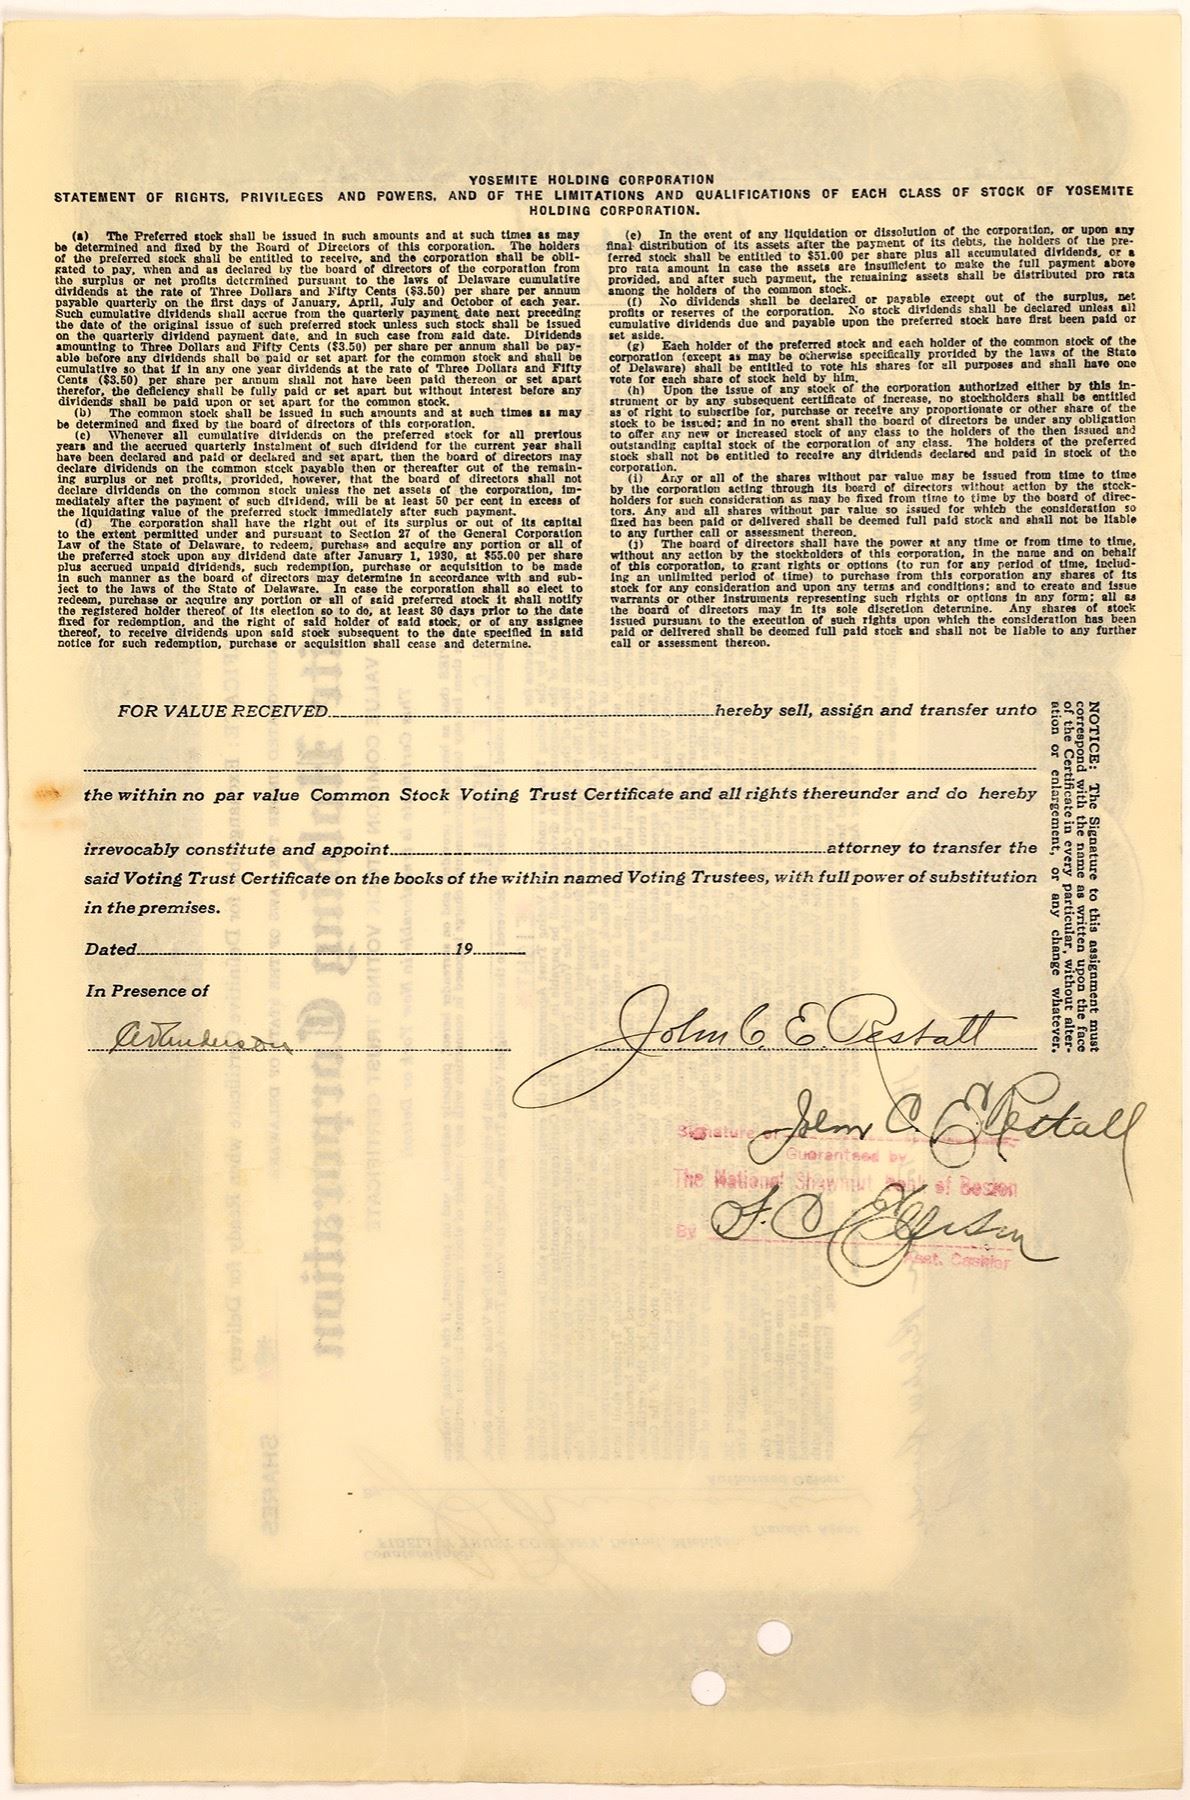 YOSEMITE HOLDING CORPORATION
STATEMENT OF RIGHTS, PRIVILEGES AND POWERS, AND OF THE LIMITATIONS AND QUALIFICATIONS OF EACH CLASS OF STOCK OF YOSEMITE
HOLDING CORPORATION.
(a) The Preferred stock shall be issued in such amounts and at such times as may
be determined and fixed by the Board of Directors of this corporation. The holders
of the preferred stock shall be entitled to receive, and the corporation shall be obli-
gated to pay, when and as declared by the board of directors of the corporation from
the surplus or net profits determined pursuant to the laws of Delaware cumulative
dividends at the rate of Three Dollars and Fifty Cents ($3.50) per share per annum
payable quarterly on the first days of January, April, July and October of each year.
Such cumulative dividends shall accrue from the quarterly payment date next preceding
the date of the original issue of such preferred stock unless such stock shall be issued
on the quarterly dividend payment date, and in such case from said date. Dividends
amounting to Three Dollars and Fifty Cents ($3.50) per share per annum shall be pay-
able before any dividends shall be paid or set apart for the common stock and shall be
cumulative so that if in any one year dividends at the rate of Three Dollars and Fifty
Cents ($3.50) per share per annum shall not have been paid thereon or set apart
therefor, the deficiency shall be fully paid or set apart but without interest before any
dividends shall be paid upon or set apart for the common stock.
(b) The common stock shall be issued in such amounts and at such times as may
be determined and fixed by the board of directors of this corporation.
(c) Whenever all cumulative dividends on the preferred stock for all previous
years and the accrued quarterly instalment of such dividend for the current year shall
have been declared and paid or declared and set apart, then the board of directors may
declare dividends on the common stock payable then or thereafter out of the remain-
ing surplus or net profits, provided, however, that the board of directors shall not
declare dividends on the common stock unless the net assets of the corporation, im-
mediately after the payment of such dividend, will be at least 50 per cent in excess of
the liquidating value of the preferred stock immediately after such payment.
(d) The corporation shall have the right out of its surplus or out of its capital
to the extent permitted under and pursuant to Section 27 of the General Corporation
Law of the State of Delaware, to redeem, purchase and acquire any portion or all of
the preferred stock upon any dividend date after January 1, 1930, at $55.00 per share
plus accrued unpaid dividends, such redemption, purchase or acquisition to be made
in such manner as the board of directors may determine in accordance with and sub-
ject to the laws of the State of Delaware. In case the corporation shall so elect to
redeem, purchase or acquire any portion or all of said preferred stock it shall notify
the registered holder thereof of its election so to do, at least 30 days prior to the date
fixed for redemption, and the right of said holder of said stock, or of any assignee
thereof, to receive dividends upon said stock subsequent to the date specified in said
notice for such redemption, purchase or acquisition shall cease and determine.
(e) In the event of any liquidation or dissolution of the corporation, or upon any
final distribution of its assets after the payment of its debts, the holders of the pre-
ferred stock shall be entitled to $51.00 per share plus all accumulated dividends, or a
pro rata amount in case the assets are insufficient to make the full payment above
provided, and after such payment, the remaining assets shall be distributed pro rata
among the holders of the common stock.
(f) No dividends shall be declared or payable except out of the surplus, net
profits or reserves of the corporation. No stock dividends shall be declared unless all
cumulative dividends due and payable upon the preferred stock have first been paid or
set aside.
(g) Each holder of the preferred stock and each holder of the common stock of the
corporation (except as may be otherwise specifically provided by the laws of the State
of Delaware) shall be entitled to vote his shares for all purposes and shall have one
vote for each share of stock held by him.
(h) Upon the issue of any stock of the corporation authorized either by this in-
strument or by any subsequent certificate of increase, no stockholders shall be entitled
as of right to subscribe for, purchase or receive any proportionate or other share of the
stock to be issued; and in no event shall the board of directors be under any obligation
to offer any new or increased stock of any class to the holders of the then issued and
outstanding capital stock of the corporation of any class. The holders of the preferred
stock shall not be entitled to receive any dividends declared and paid in stock of the
corporation.
(i) Any or all of the shares without par value may be issued from time to time
by the corporation acting through its board of directors without action by the stock-
holders for such consideration as may be fixed from time to time by the board of direc-
tors. Any and all shares without par value so issued for which the consideration so
fixed has been paid or delivered shall be deemed full paid stock and shall not be liable
to any further call or assessment thereon.
(j) The board of directors shall have the power at any time or from time to time,
without any action by the stockholders of this corporation, in the name and on behalf
of this corporation, to grant rights or options (to run for any period of time, includ-
ing an unlimited period of time) to purchase from this corporation any shares of its
stock for any consideration and upon any terms and conditions; and to create and issue
warrants or other instruments representing such rights or options in any form; all as
the board of directors may in its sole discretion determine. Any shares of stock
issued pursuant to the execution of such rights upon which the consideration has been
paid or delivered shall be deemed full paid stock and shall not be liable to any further
call or assessment thereon.
FOR VALUE RECEIVED hereby sell, assign and transfer unto
the within no par value Common Stock Voting Trust Certificate and all rights thereunder and do hereby
irrevocably constitute and appoint attorney to transfer the
said Voting Trust Certificate on the books of the within named Voting Trustees, with full power of substitution
in the premises.
Dated 19
In Presence of
NOTICE: The Signature to this assignment must
correspond with the name as written upon the face
of the Certificate in every particular, without alter-
ation or enlargement, or any change whatever.
John C. E. Restall
John C. E. Restall
Signature of
Guaranteed by
The National Shawmut Bank of Boston
By
Asst. Cashier